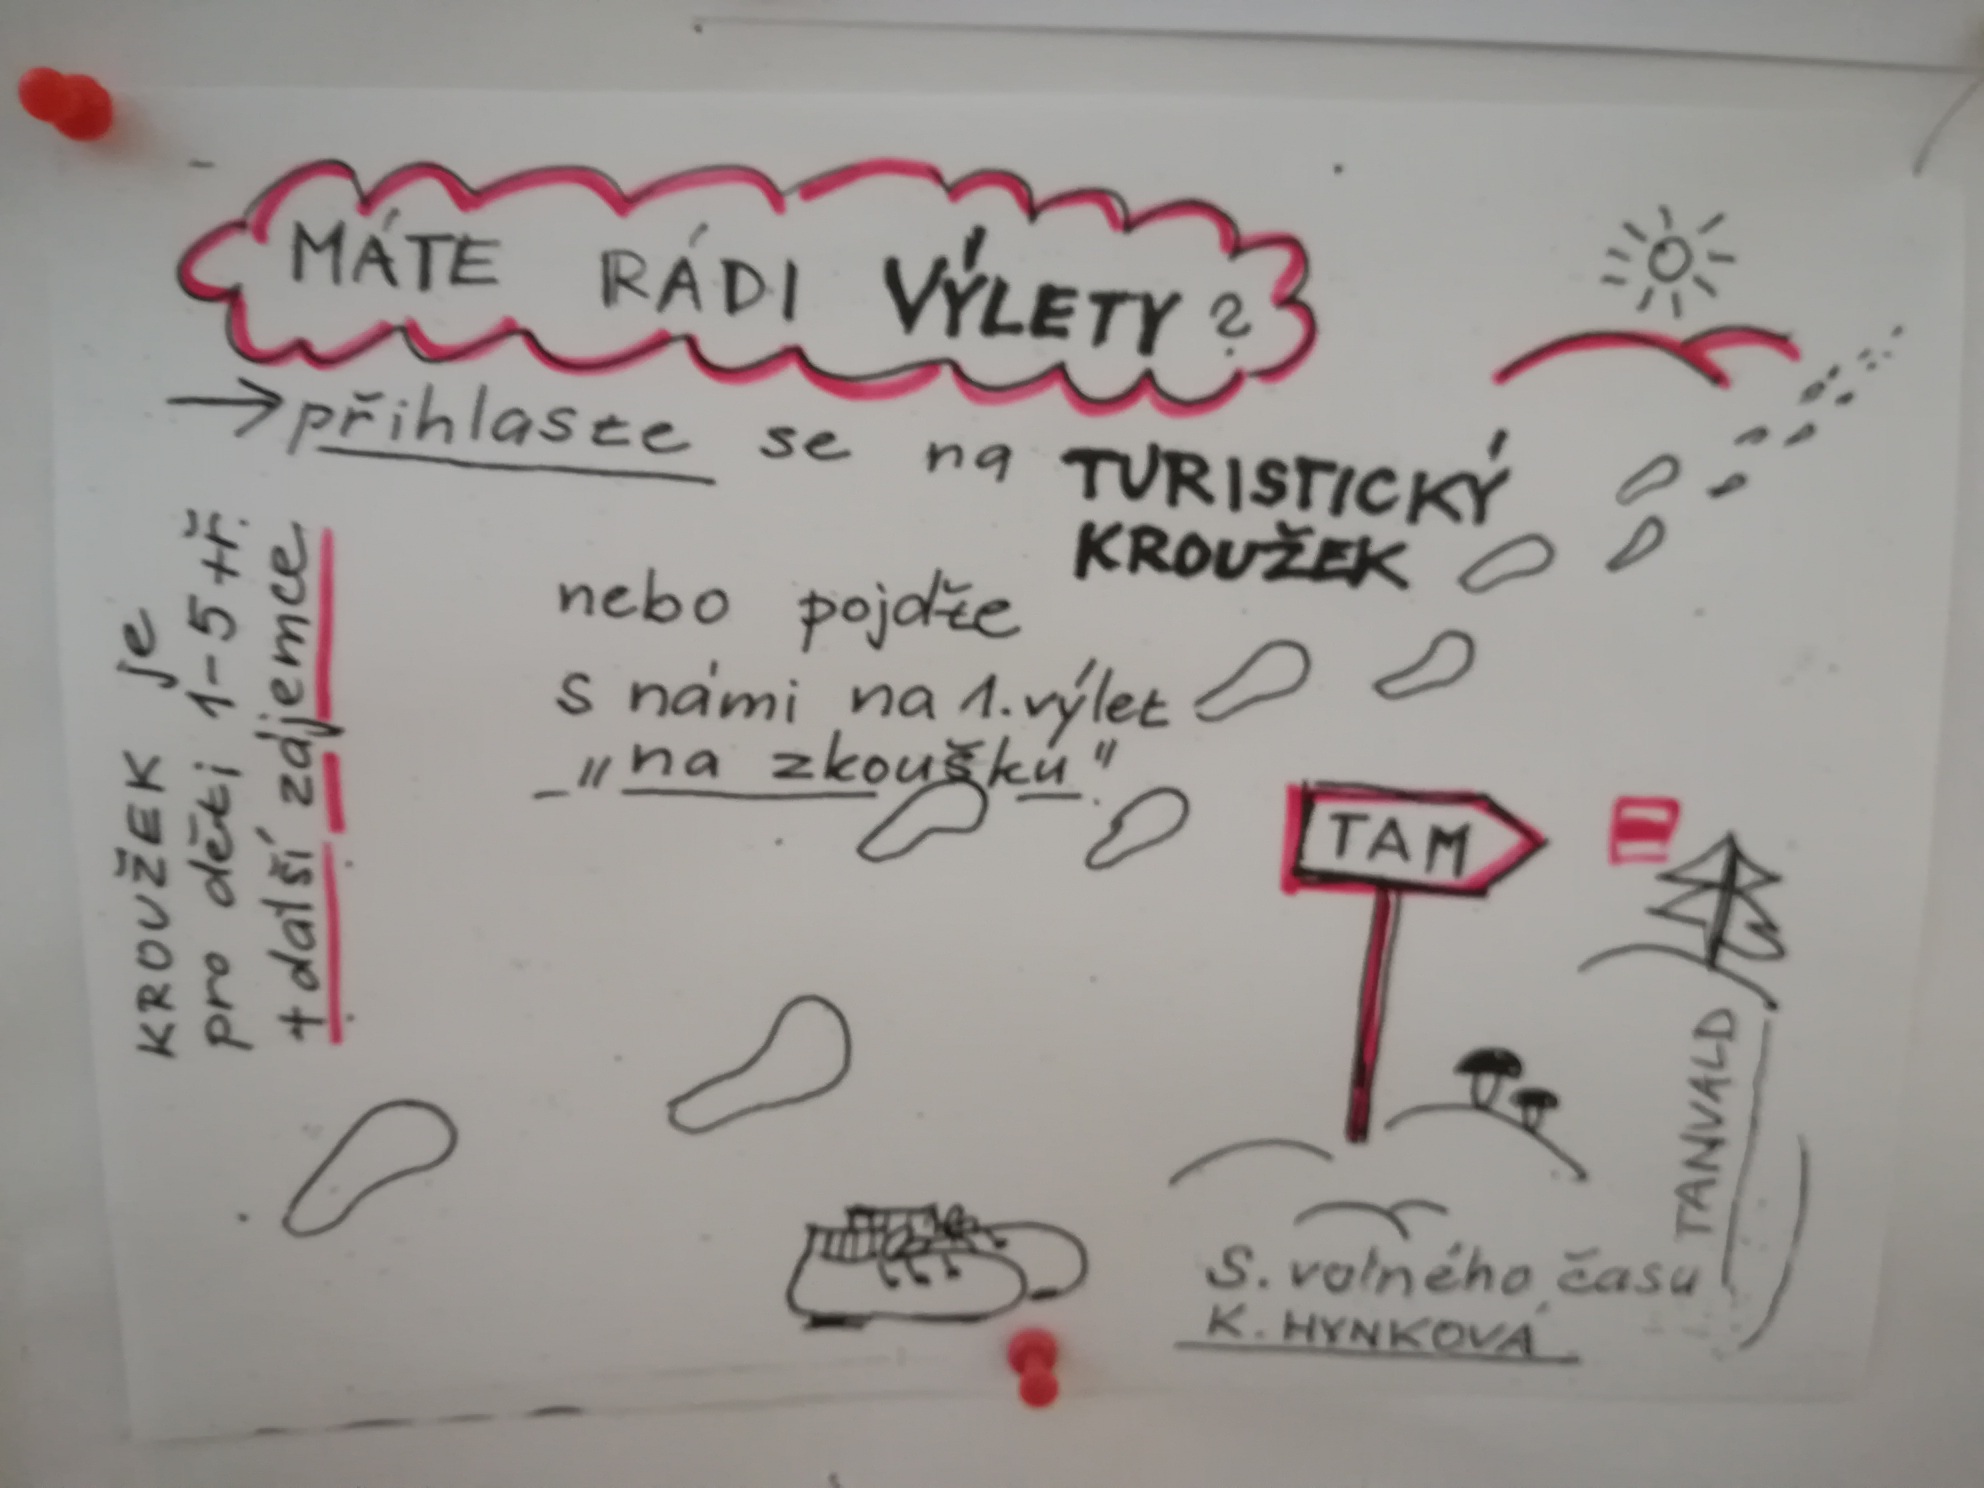 MÁTE RÁDI VÝLETY?
→ přihlaste se na TURISTICKÝ
KROUŽEK
nebo pojďte
s námi na 1. výlet
„na zkoušku"
KROUŽEK je
pro děti 1-5 tř.
+ další zájemce
TAM
TANVALD
S. volného času
K. HYNKOVÁ